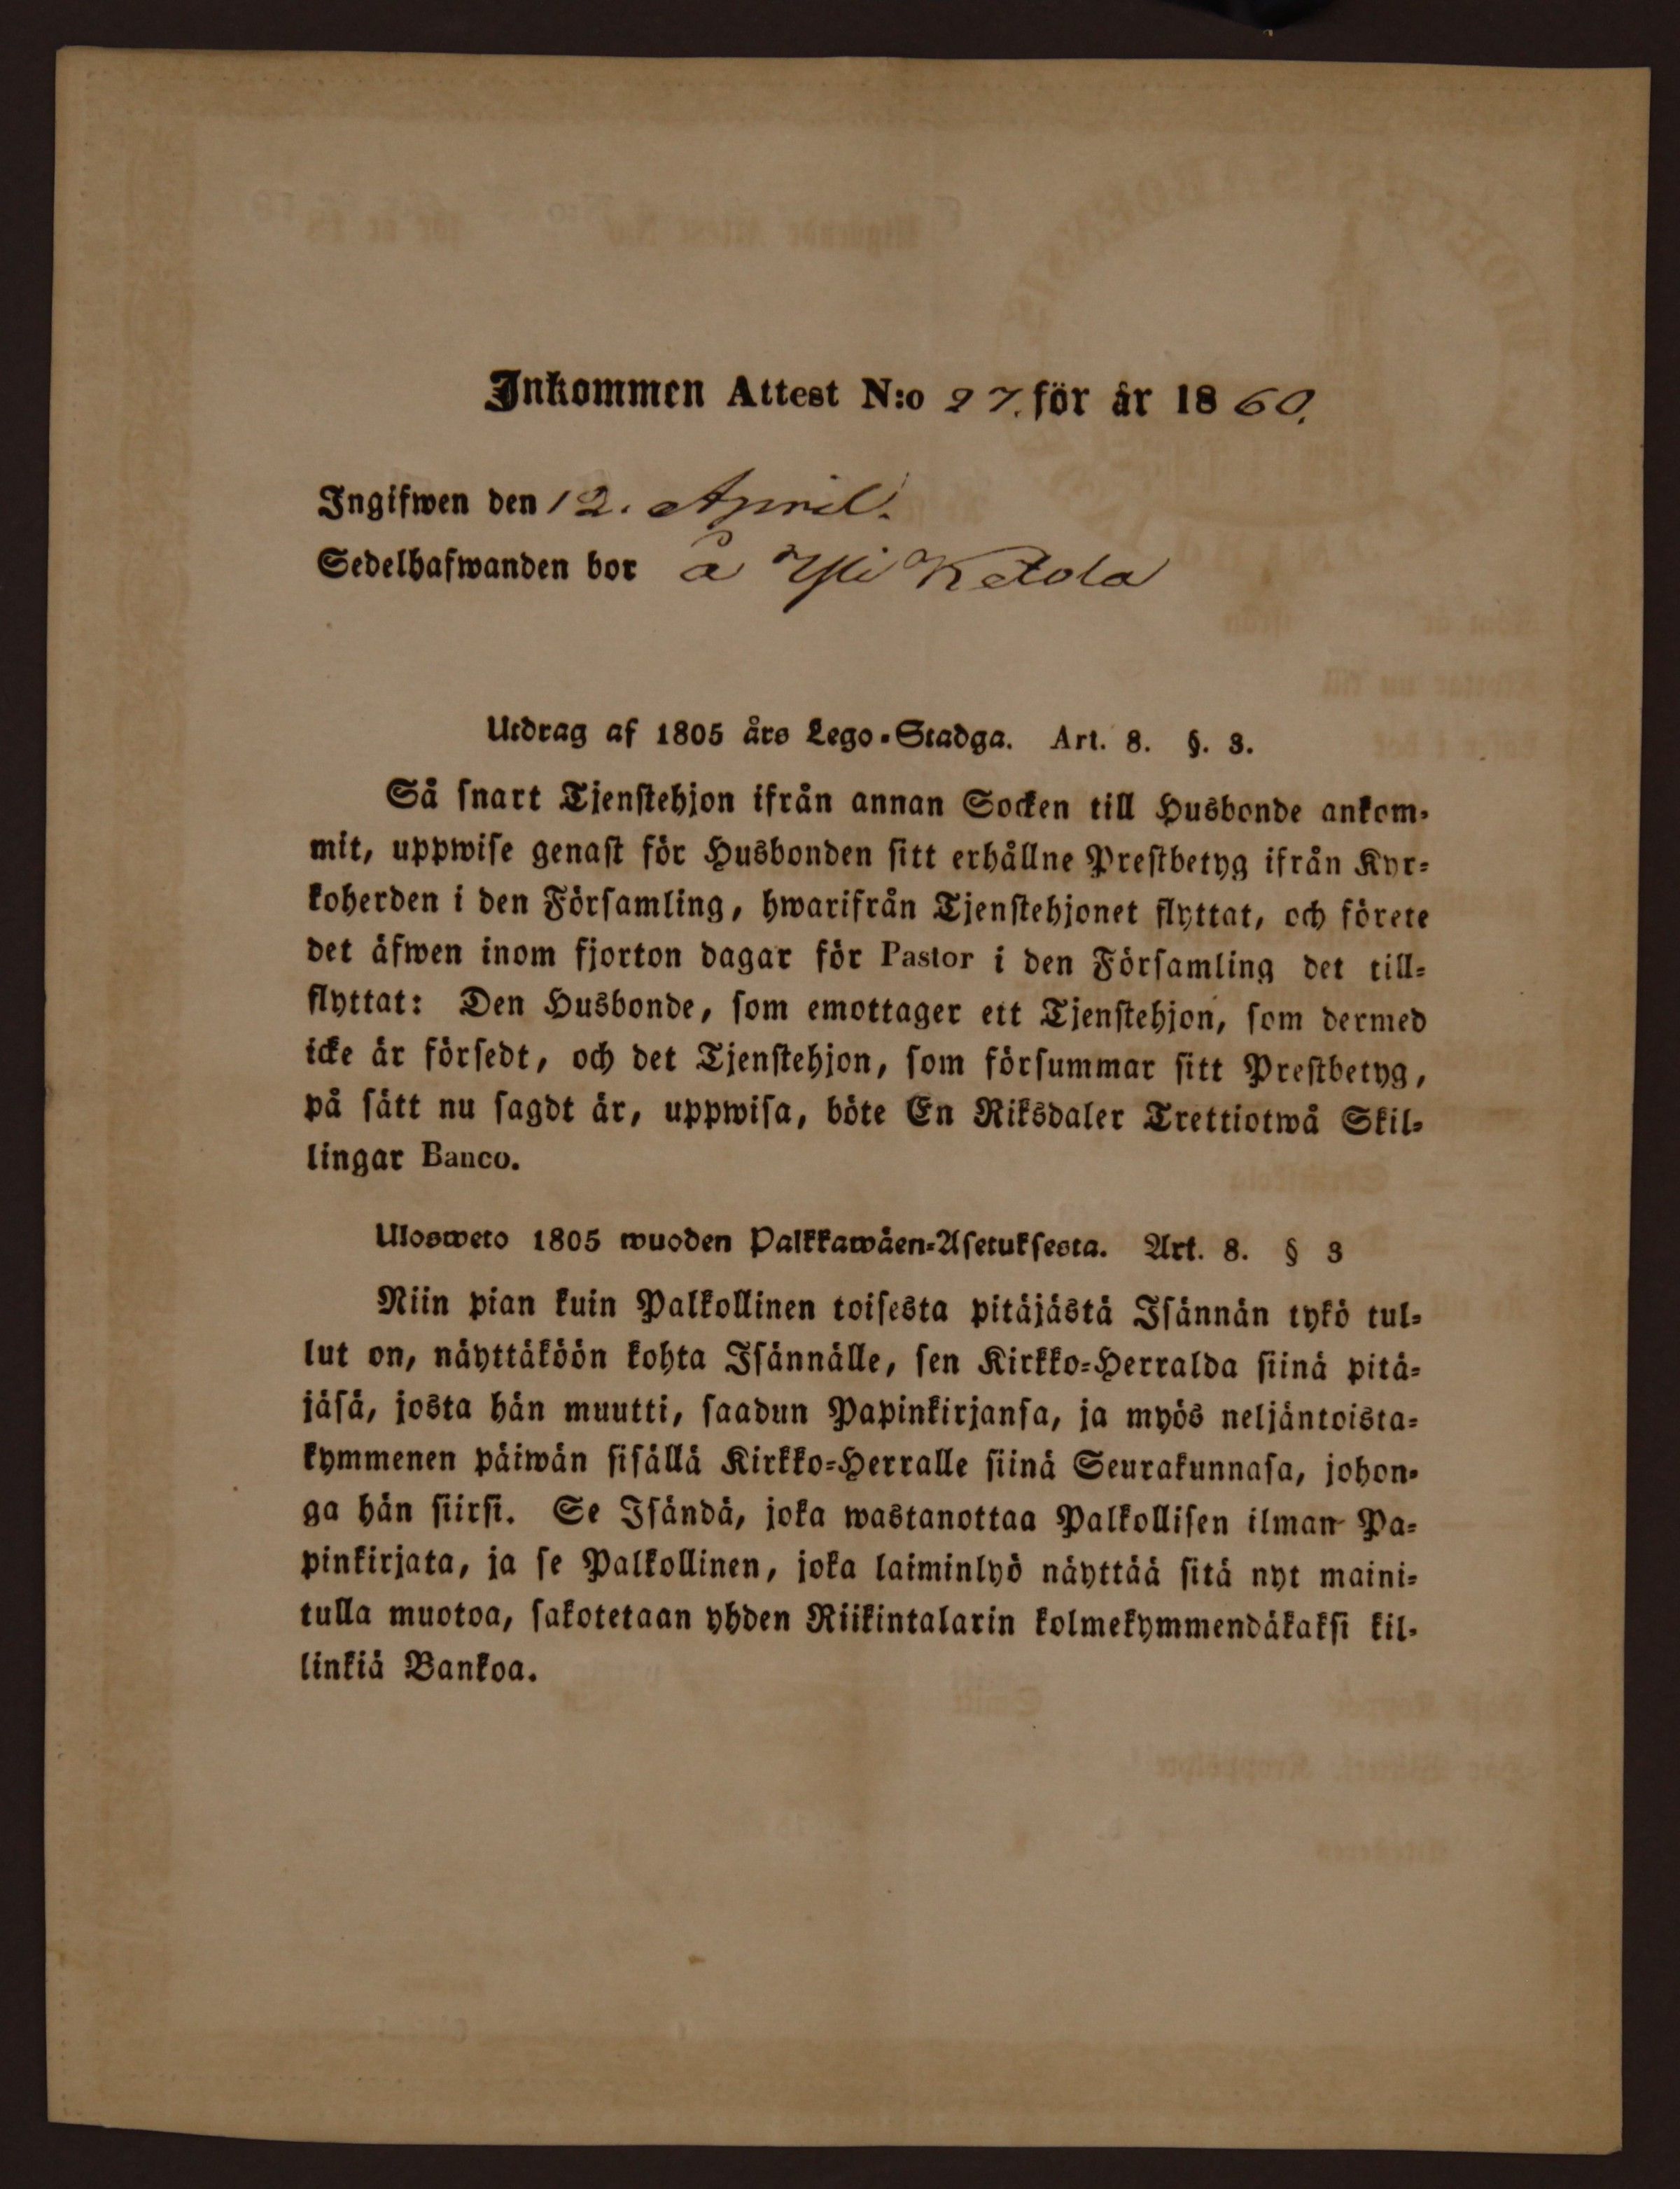 Inkommen Attest N:o 27. för år 1860.
Ingifwen den 12. April.
Sedelhafwanden bor å Yli Ketola
Utdrag af 1805 års Lego-Stadga. Art. 8. §. 3.
Så snart Tjenstehjon ifrån annan Socken till Husbonde ankom-
mit, uppwise genast för Husbonden sitt erhållne Prestbetyg ifrån Kyr-
koherden i den Församling, hwarifrån Tjenstehjonet flyttat, och förete
det äfwen inom fjorton dagar för Pastor i den Församling det till-
flyttat: Den Husbonde, som emottager ett Tjenstehjon, som dermed
icke är försedt, och det Tjenstehjon, som försummar sitt Prestbetyg,
på sätt nu sagdt är, uppwisa, böte En Riksdaler Trettiotwå Skil-
lingar Banco.
Ulosweto 1805 wuoden Palkkawäen-Asetuksesta. Art. 8. § 3
Niin pian kuin Palkollinen toisesta pitäjästä Isännän tykö tul-
lut on, näyttäköön kohta Isännälle, sen Kirkko-Herralda siinä pitä-
jäsä, josta hän muutti, saadun Papinkirjansa, ja myös neljäntoista-
kymmenen päiwän sisällä Kirkko-Herralle siinä Seurakunnasa, johon-
ga hän siirsi. Se Isändä, joka wastanottaa Palkollisen ilman Pa-
pinkirjata, ja se Palkollinen, joka laiminlyö näyttää sitä nyt maini-
tulla muotoa, sakotetaan yhden Riikintalarin kolmekymmendäkaksi kil-
linkiä Bankoa.